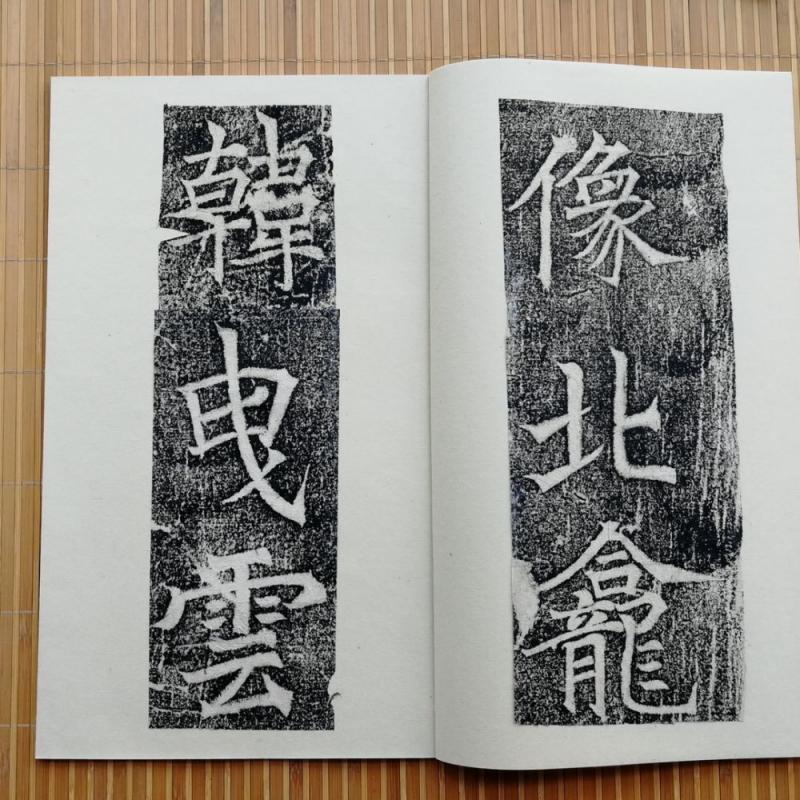 像北龕
韓曳雲